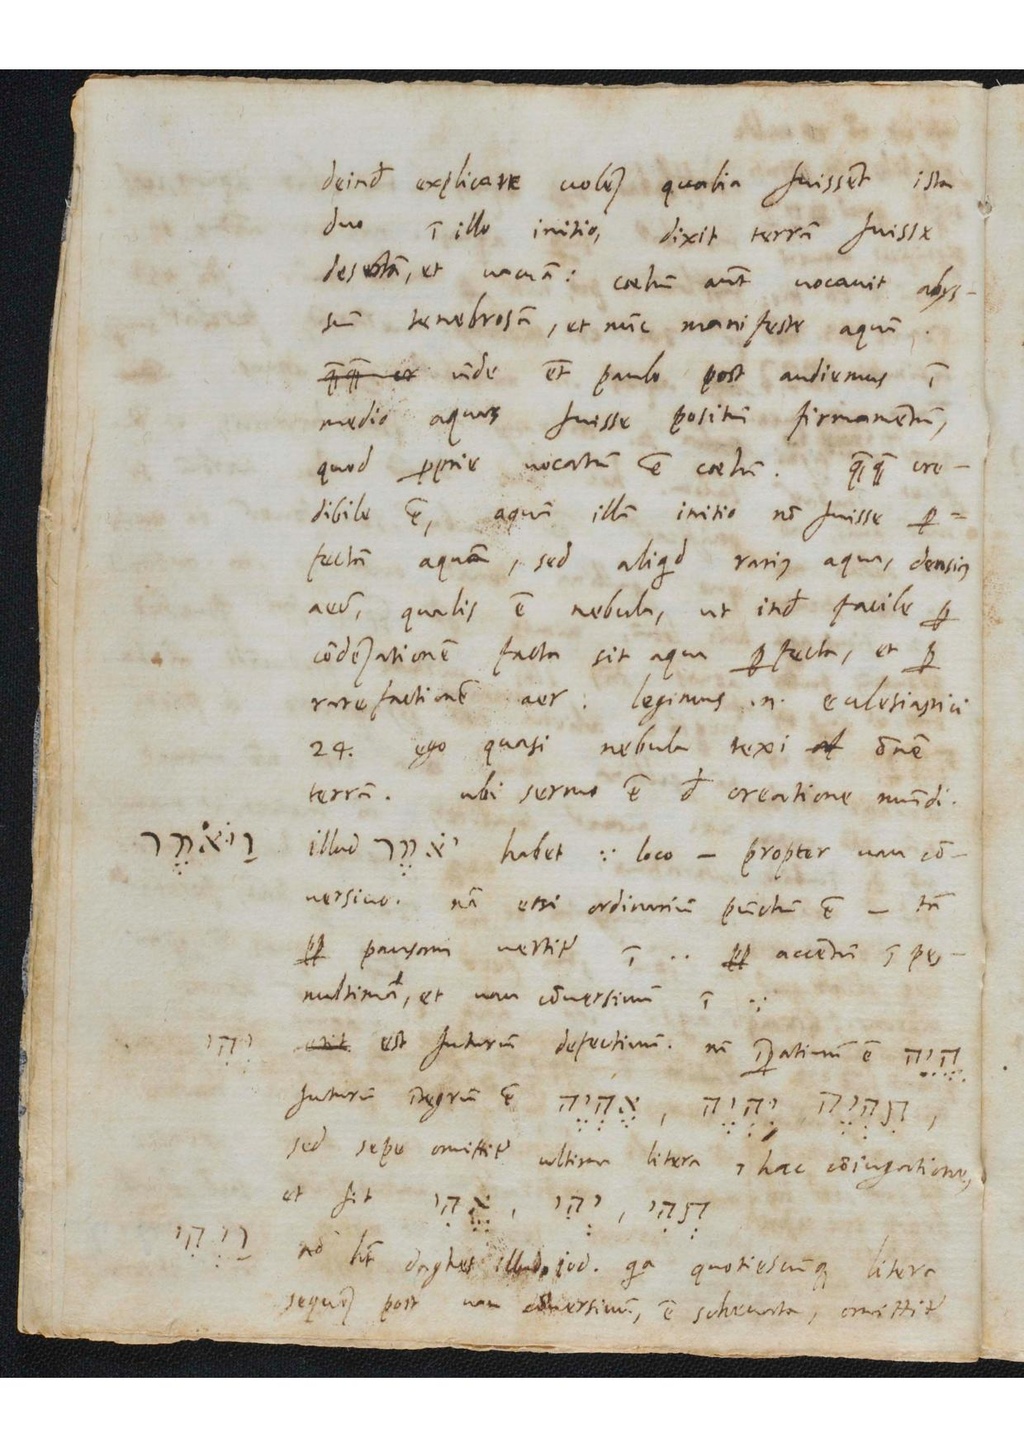 deinď explicare uoleɳ qualia fuissēt ista
duo ī illo initio, dixit terrā fuisse
desertā, et uacuā: cœlū aūt uocauit abys-
sū tenebrosā, et nūc manifeste aquā.
uñde ēt paulo post audiemus ī
medio aquaꝝ fuisse positū firmamētū,
quod ꝓprie uocatū ē cœlū. q̄q̄ cre-
dibile ē, aquā illā initio nō fuisse ꝑ=
fectā aquā, sed aliqd rariꝰ aqua, densiꝰ
aerē, qualis ē nebula, ut inď facile ꝑ
cōdēsationē facta sit aqua ꝑfecta, et ꝑ
rarefactionē aer: legimus .n. eclesiastici
24. ego quasi nebula texi ōnē
terrā. ubi sermo ē ď creatione mūdi.
וַיֹּאמֶר illud יֹאמֶר habet ֶ loco – propter uau cō-
uersiuo. nā etsi ordinariū pūctū ē – tn̄
ꝓꝑ pausam uertit᷑ ī .. ꝓꝑ accētū ī pe-
nultimā, et uau cōuersiuū ī ֶ
יְהִי est futurū defectiuū. nā ē הָיָה
futurū ītegrū ē אֶהְיֶה , יִהְיֶה תִהְיֶה ,
sed sepe omittit᷑ ultima litera ī hac cōiugatione,
et fit אֱהִי , יְהִי , תְהִי
וַיְהִי nō hēt daghes illud iod. qa quotiescūqꝫ litera
sequēs post uau cōuersiuū, ē scheuata, omittit᷑